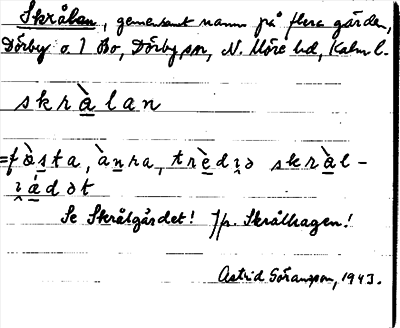 Skrålan, gemensamt namn på flera gårdar,
Dörby o. 1 Bo, Dörby sn, N. Möre hd, Kalm l.
skràlan
=fàsta, ànra, trèdiə skràl-
iádət
Se Skrålgårdet! Jfr. Skrålhagen!
Astrid Göransson, 1943.